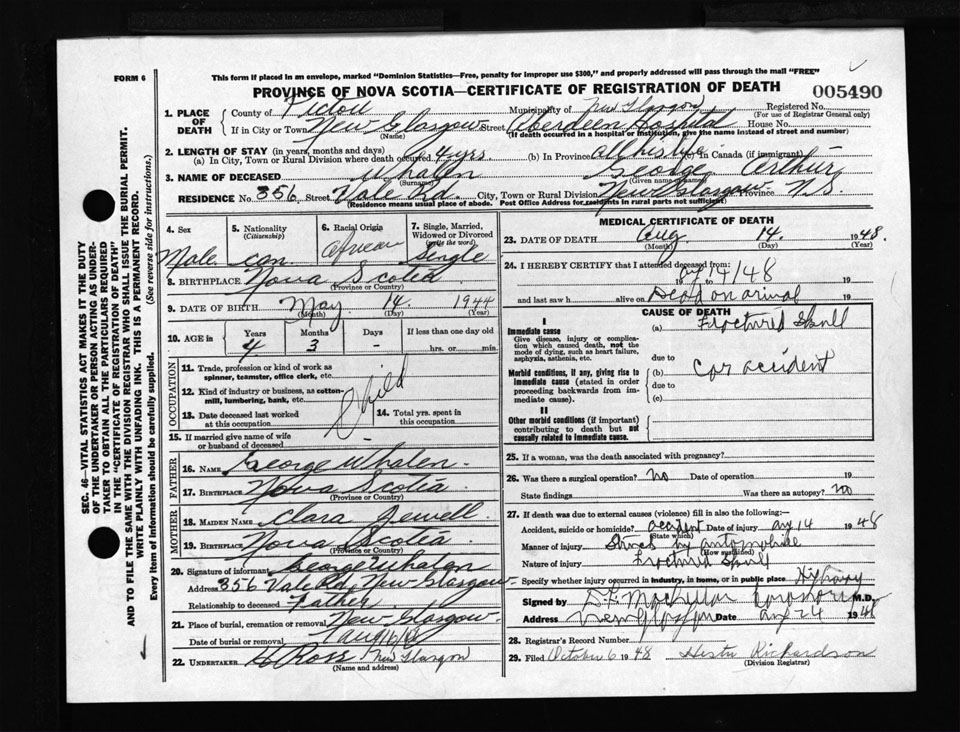 FORM 6
This form if placed in an envelope, marked "Dominion Statistics—Free, penalty for improper use $300," and properly addressed will pass through the mail "FREE"
PROVINCE OF NOVA SCOTIA—CERTIFICATE OF REGISTRATION OF DEATH 005490
1. PLACE OF DEATH
County of Pictou Municipality of New Glasgow Registered No.
(For use of Registrar General only)
If in City or Town New Glasgow Street Aberdeen Hospital House No.
(Name) (If death occurred in a hospital or institution, give the name instead of street and number)
2. LENGTH OF STAY (in years, months and days)
(a) In City, Town or Rural Division where death occurred 4 yrs (b) In Province all his life (c) In Canada (if immigrant)
3. NAME OF DECEASED Whalen George Arthur
(Surname) (Given names)
RESIDENCE No. 356 Street Vale Rd. City, Town or Rural Division New Glasgow Province N.S.
(Residence means usual place of abode. Post Office Address for residents in rural parts not sufficient)
4. Sex 5. Nationality (Citizenship) 6. Racial Origin 7. Single, Married, Widowed or Divorced (write the word)
Male can African Single
8. BIRTHPLACE Nova Scotia
(Province or Country)
9. DATE OF BIRTH May 14 1944
(Month) (Day) (Year)
10. AGE in Years Months Days If less than one day old
4 3 - hrs. or min.
OCCUPATION
11. Trade, profession or kind of work as spinner, teamster, office clerk, etc.
12. Kind of industry or business, as cotton-mill, lumbering, bank, etc.
Child
13. Date deceased last worked at this occupation 14. Total yrs. spent in this occupation
15. If married give name of wife or husband of deceased -
FATHER
16. NAME George Whalen
17. BIRTHPLACE Nova Scotia
(Province or Country)
MOTHER
18. MAIDEN NAME Clara Jewell
19. BIRTHPLACE Nova Scotia
(Province or Country)
20. Signature of informant George Whalen
Address 356 Vale Rd, New Glasgow
Relationship to deceased Father
21. Place of burial, cremation or removal New Glasgow
Date of burial or removal Aug 16/48
22. UNDERTAKER H Ross New Glasgow
(Name and address)
MEDICAL CERTIFICATE OF DEATH
23. DATE OF DEATH Aug 14 1948
(Month) (Day) (Year)
24. I HEREBY CERTIFY that I attended deceased from
Aug 14/48 19 to 19
and last saw h alive on Dead on arival 19
CAUSE OF DEATH
I
Immediate cause
Give disease, injury or complication which caused death, not the mode of dying, such as heart failure, asphyxia, asthenia, etc.
(a) Fractured Skull
due to
Morbid conditions, if any, giving rise to immediate cause (stated in order proceeding backwards from immediate cause).
(b) Car accident
due to
(c)
II
Other morbid conditions (if important) contributing to death but not causally related to immediate cause.
25. If a woman, was the death associated with pregnancy?
26. Was there a surgical operation? No Date of operation 19
State findings Was there an autopsy? No
27. If death was due to external causes (violence) fill in also the following:—
Accident, suicide or homicide? accident Date of injury Aug 14 1948
(State which)
Manner of injury Struck by automobile
(How sustained)
Nature of injury Fractured Skull
Specify whether injury occurred in industry, in home, or in public place Highway
Signed by D.F. MacKellar Coroner M.D.
Address New Glasgow Date Aug 24 1948
28. Registrar's Record Number
29. Filed October 6 1948 Hester Richardson
(Division Registrar)
SEC. 46—VITAL STATISTICS ACT MAKES IT THE DUTY
OF THE UNDERTAKER OR PERSON ACTING AS UNDERTAKER TO OBTAIN ALL THE PARTICULARS REQUIRED
IN THE "CERTIFICATE OF REGISTRATION OF DEATH"
AND TO FILE THE SAME WITH THE DIVISION REGISTRAR WHO SHALL ISSUE THE BURIAL PERMIT.
WRITE PLAINLY WITH UNFADING INK. THIS IS A PERMANENT RECORD.
Every item of information should be carefully supplied. (See reverse side for instructions.)